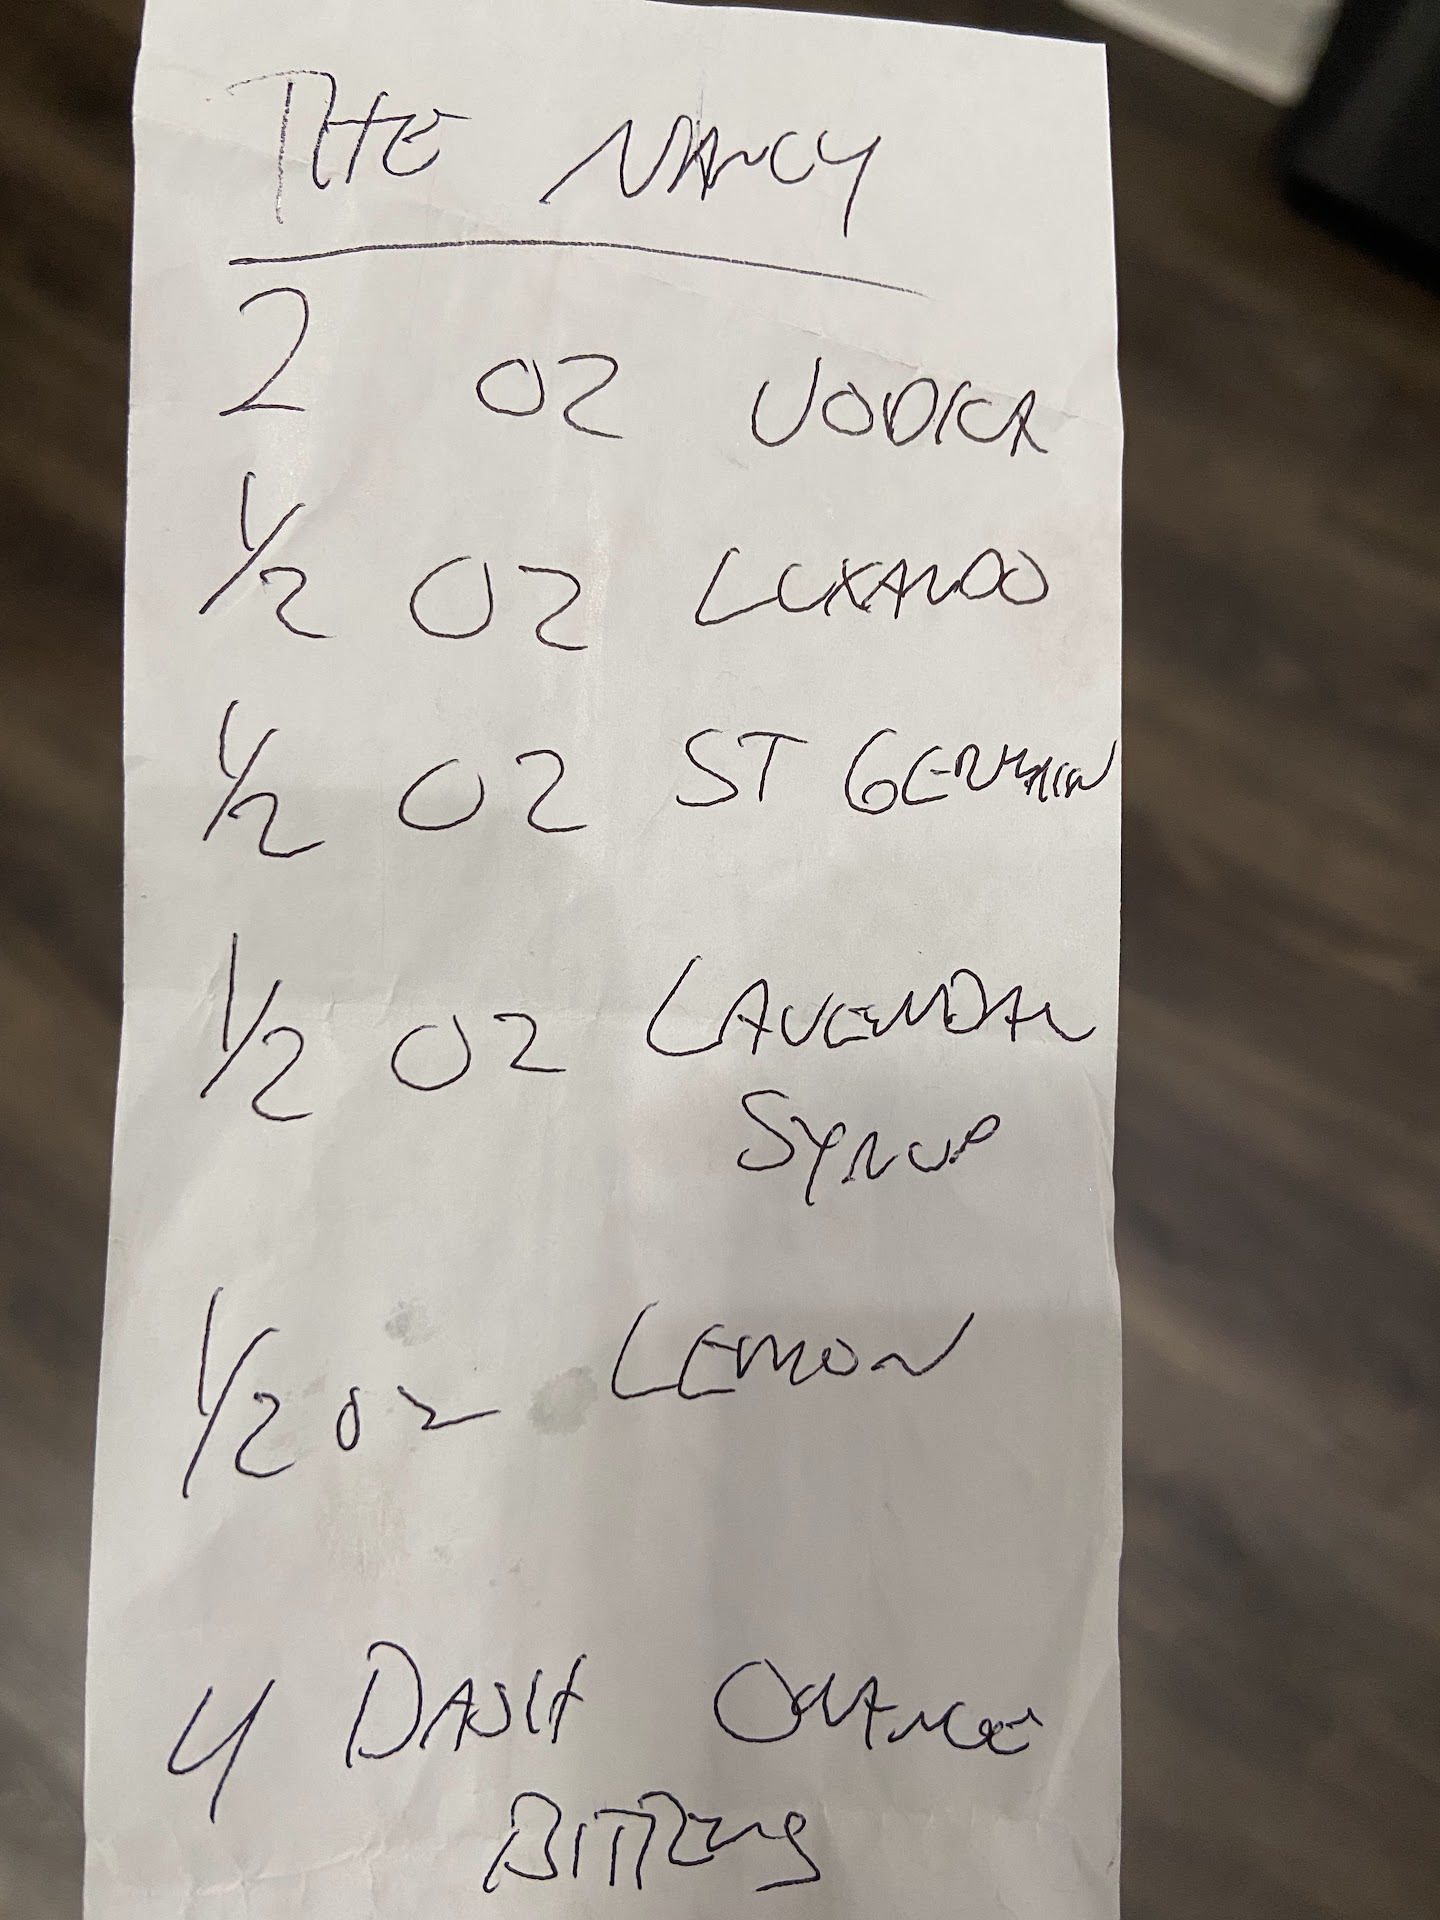 THE NANCY
2 OZ VODKA
1/2 OZ LUXARDO
1/2 OZ ST GERMAIN
1/2 OZ LAVENDAR
SYRUP
1/2 OZ LEMON
4 DASH ORANGE
BITTERS